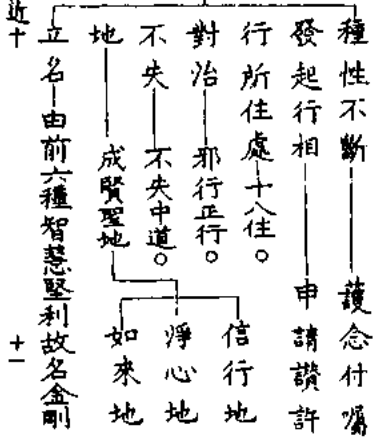 種性不斷 護念付囑
發起行相 申請讚許
行所住處 十八住。
對治 邪行正行。
不失 不失中道。
地 成賢聖地
信行地
淨心地
如來地
立名 由前六種智慧堅利故名金剛
近十 十一